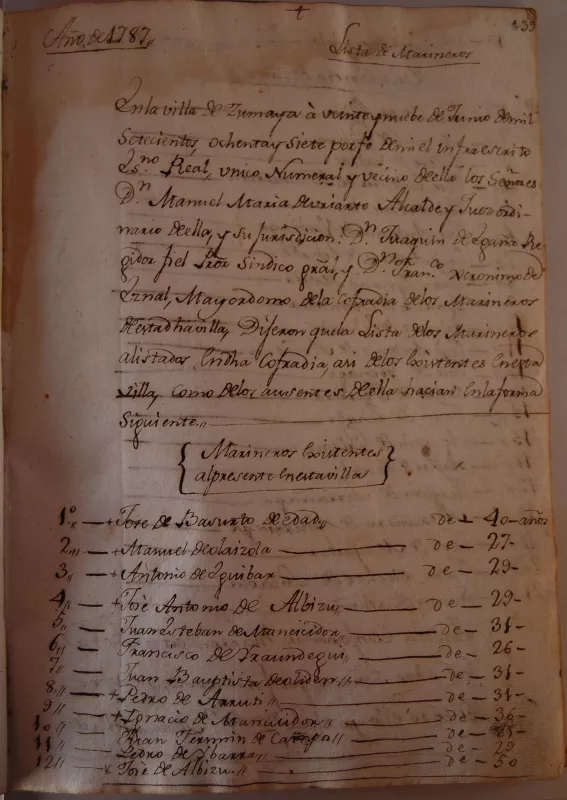 +
139
Año de 1787,,
Lista de Marineros
En la villa de Zumaya à veinte y nuebe de Junio de mil
Setecientos, ochenta y Siete por fe de mi el infraescrito
Esno Real, unico Numeral y vecino de ella los Señores
Dn Manuel Maria de uriarte Alcalde y Juez ordi-
nario de ella, y su Jurisdicion. Dn Juaquin de Egaña Re-
gidor fiel Pror Sindico gral, y Dn Franco Neronimo de
Eznal, Mayordomo de la Cofradia de los Marineros
de esta dha villa, Dijeron que la Lista de los Marineros
alistados En dha Cofradia, asi de los Existentes En esta
villa, como de los ausentes de ella hacian En la forma
Siguiente,,
{ Marineros Existentes }
al presente En esta villa
1º,, — + Jose de Basurto de edad,, de — 40 — años
2,, — + Manuel de olaizola — de — 27 —
3,, — + Antonio de Eguibar — de — 29 —
4,, — + Jose Antonio de Albizu,, — de — 29 —
5,, — Juan Esteban de Mancicidor,, — de — 31 —
6,, — Francisco de Iraundegui,, — de — 26 —
7,, — Juan Bauptista de oliden,, — de — 31 —
8,, — + Pedro de Arruti,, — de — 31 —
9,, — + Ignacio de Mancicidor,, — de — 36 —
10,, — Juan Fermin de Campo,, — de —
11,, — Pedro de Ybarra,, — de — 29
12,, — x Jose de Albizu,, — de — 50